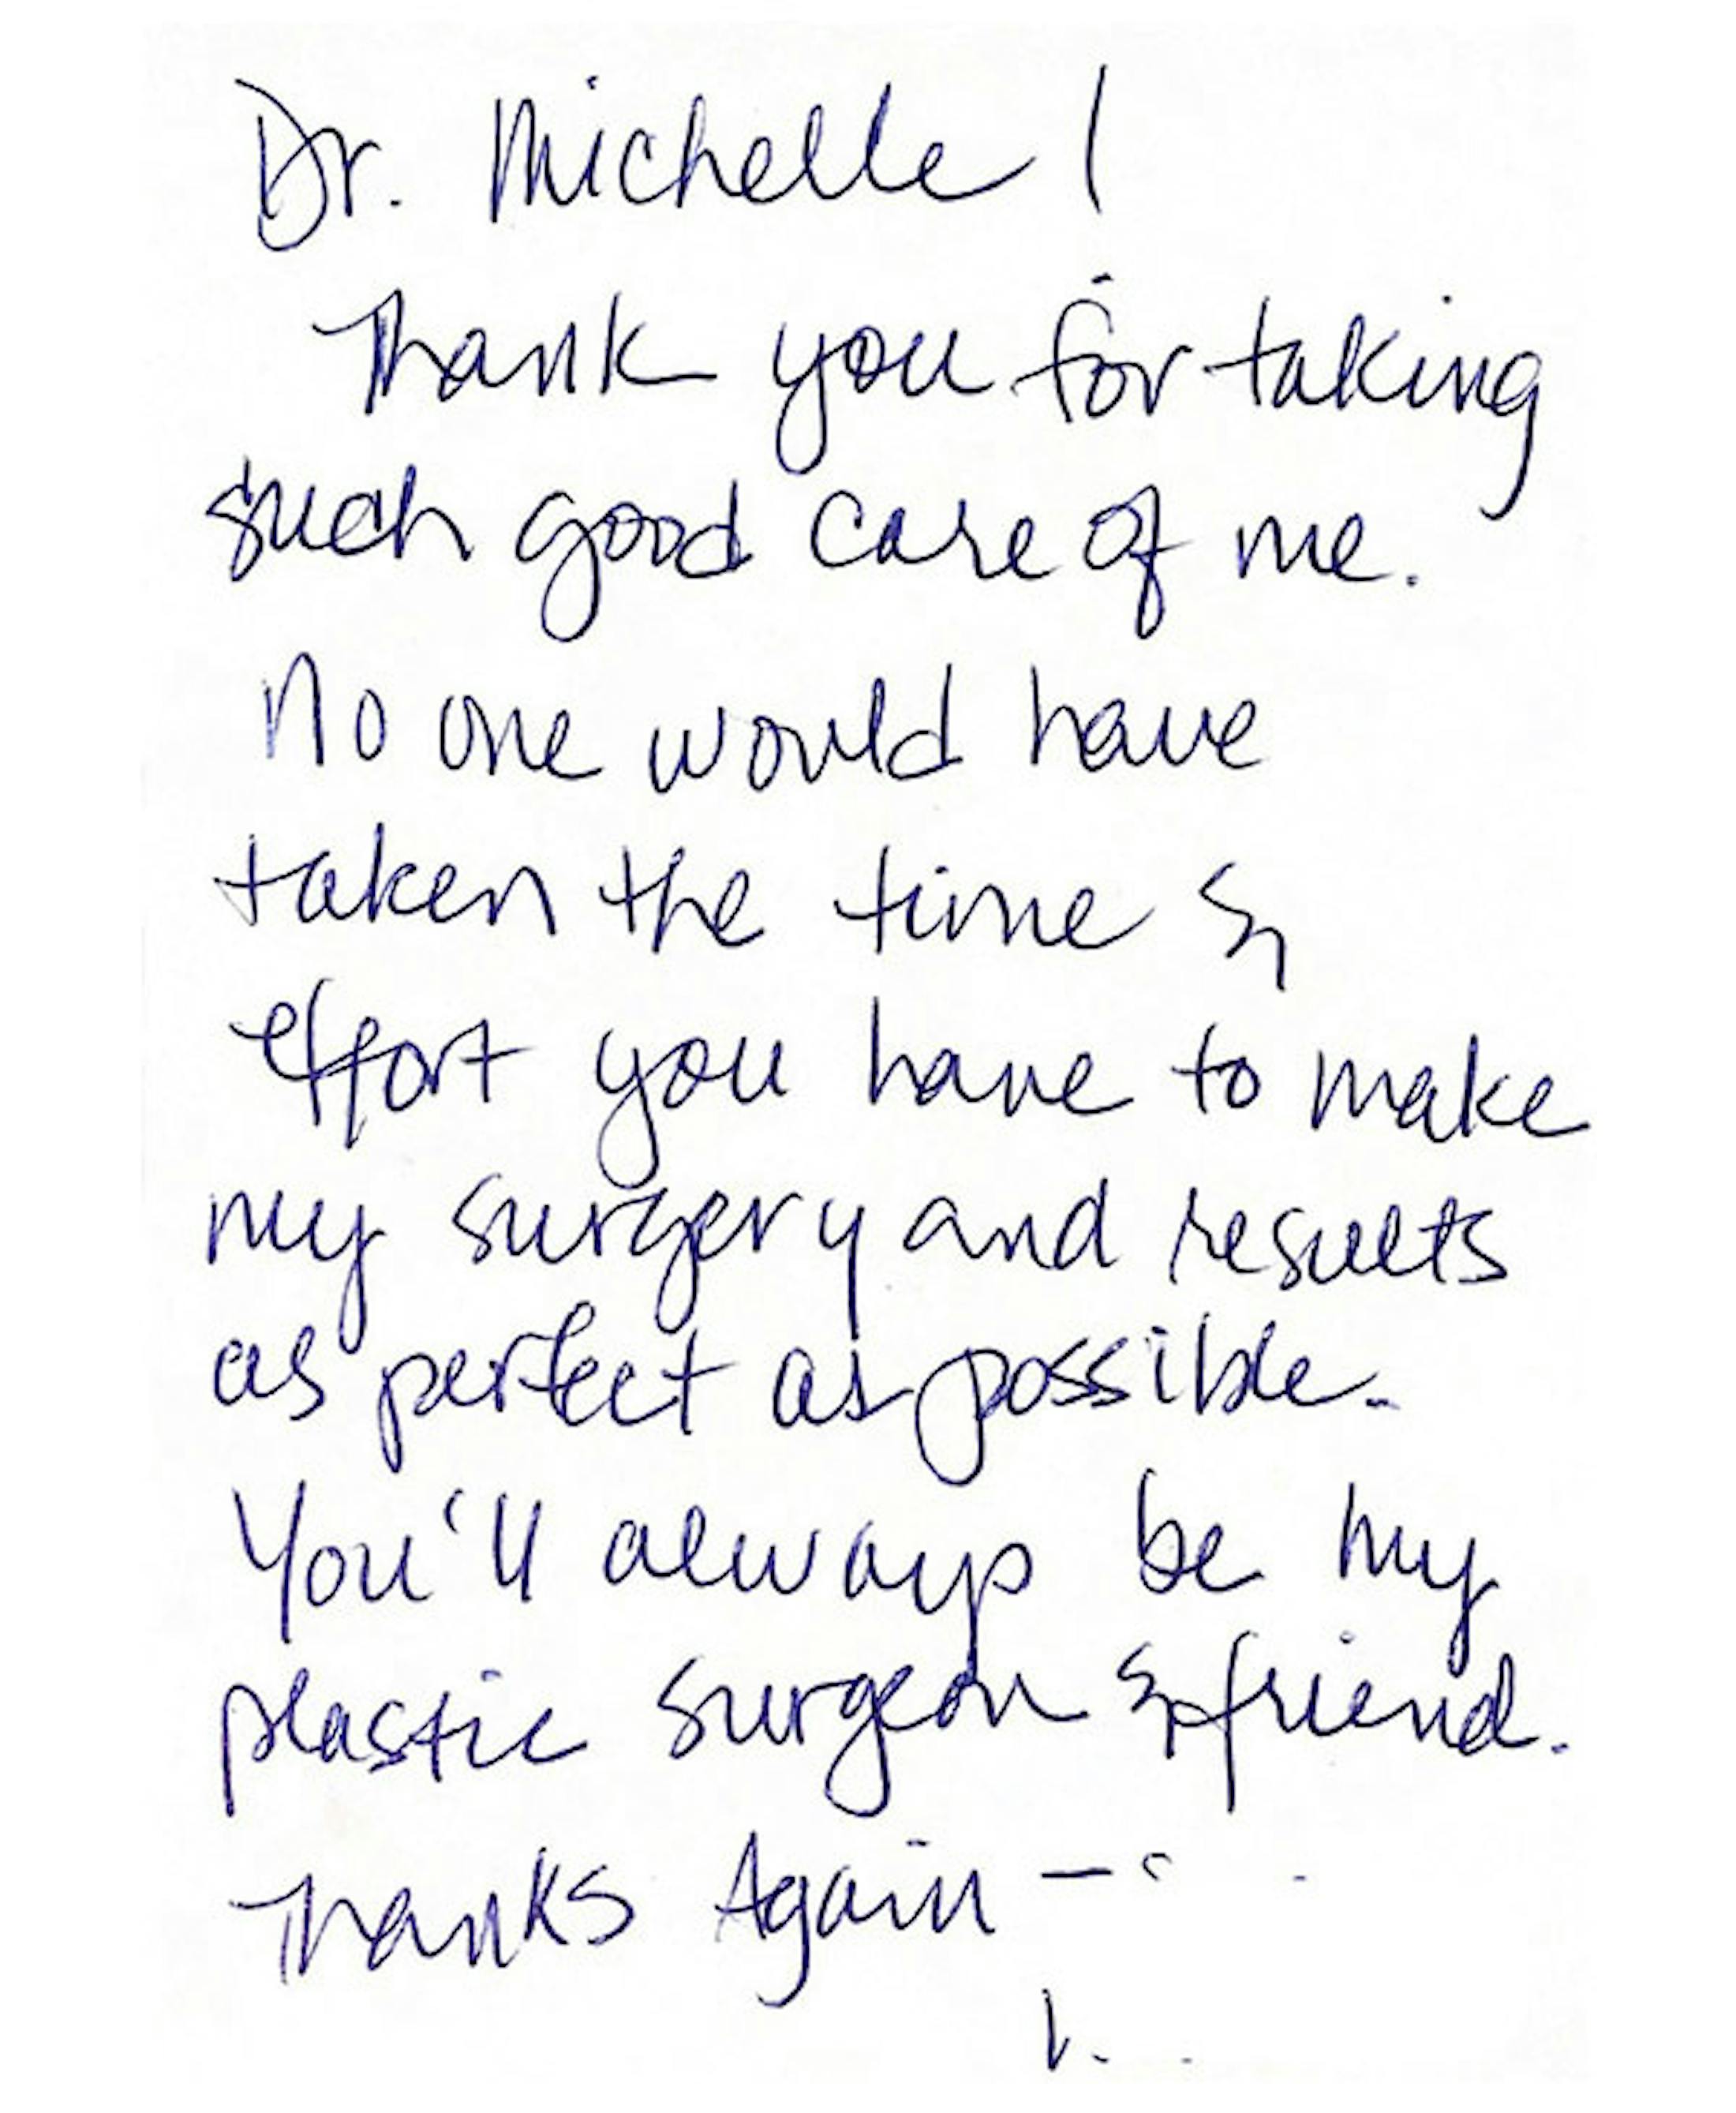 Dr. Michelle!
Thank you for taking
such good care of me.
No one would have
taken the time &
effort you have to make
my surgery and results
as perfect as possible.
You'll always be my
plastic surgeon & friend.
Thanks Again —